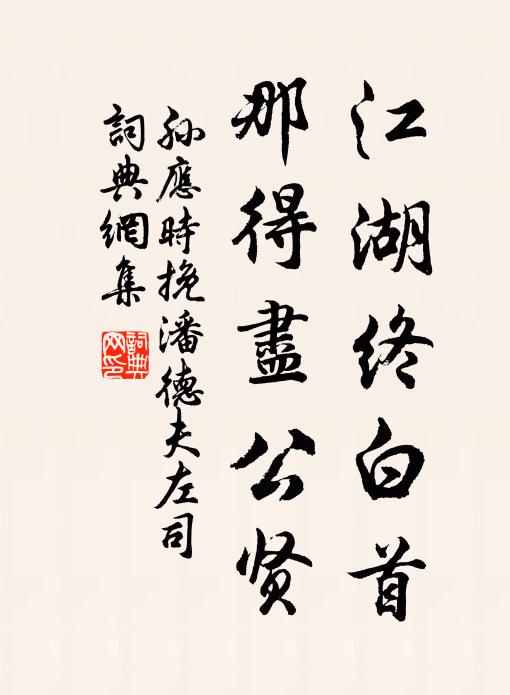 江湖终白首
那得盡公贤
孙應時挽潘德夫左司
詞典網集
詞典網印